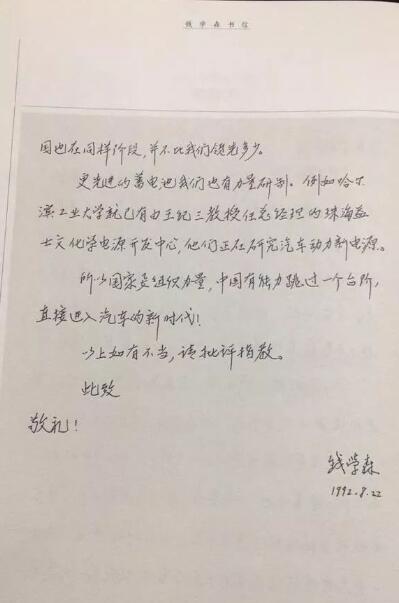 钱学森书信
国也在同样阶段,并不比我们领先多少。
更先进的蓄电池我们也有力量研制。例如哈尔
滨工业大学就已有由王纪三教授任总经理的珠海益
士文化学电源开发中心,他们正在研究汽车动力新电源。
所以国家要组织力量,中国有能力跳过一个台阶,
直接进入汽车的新时代!
以上如有不当,请批评指教。
此致
敬礼!
钱学森
1992.8.22